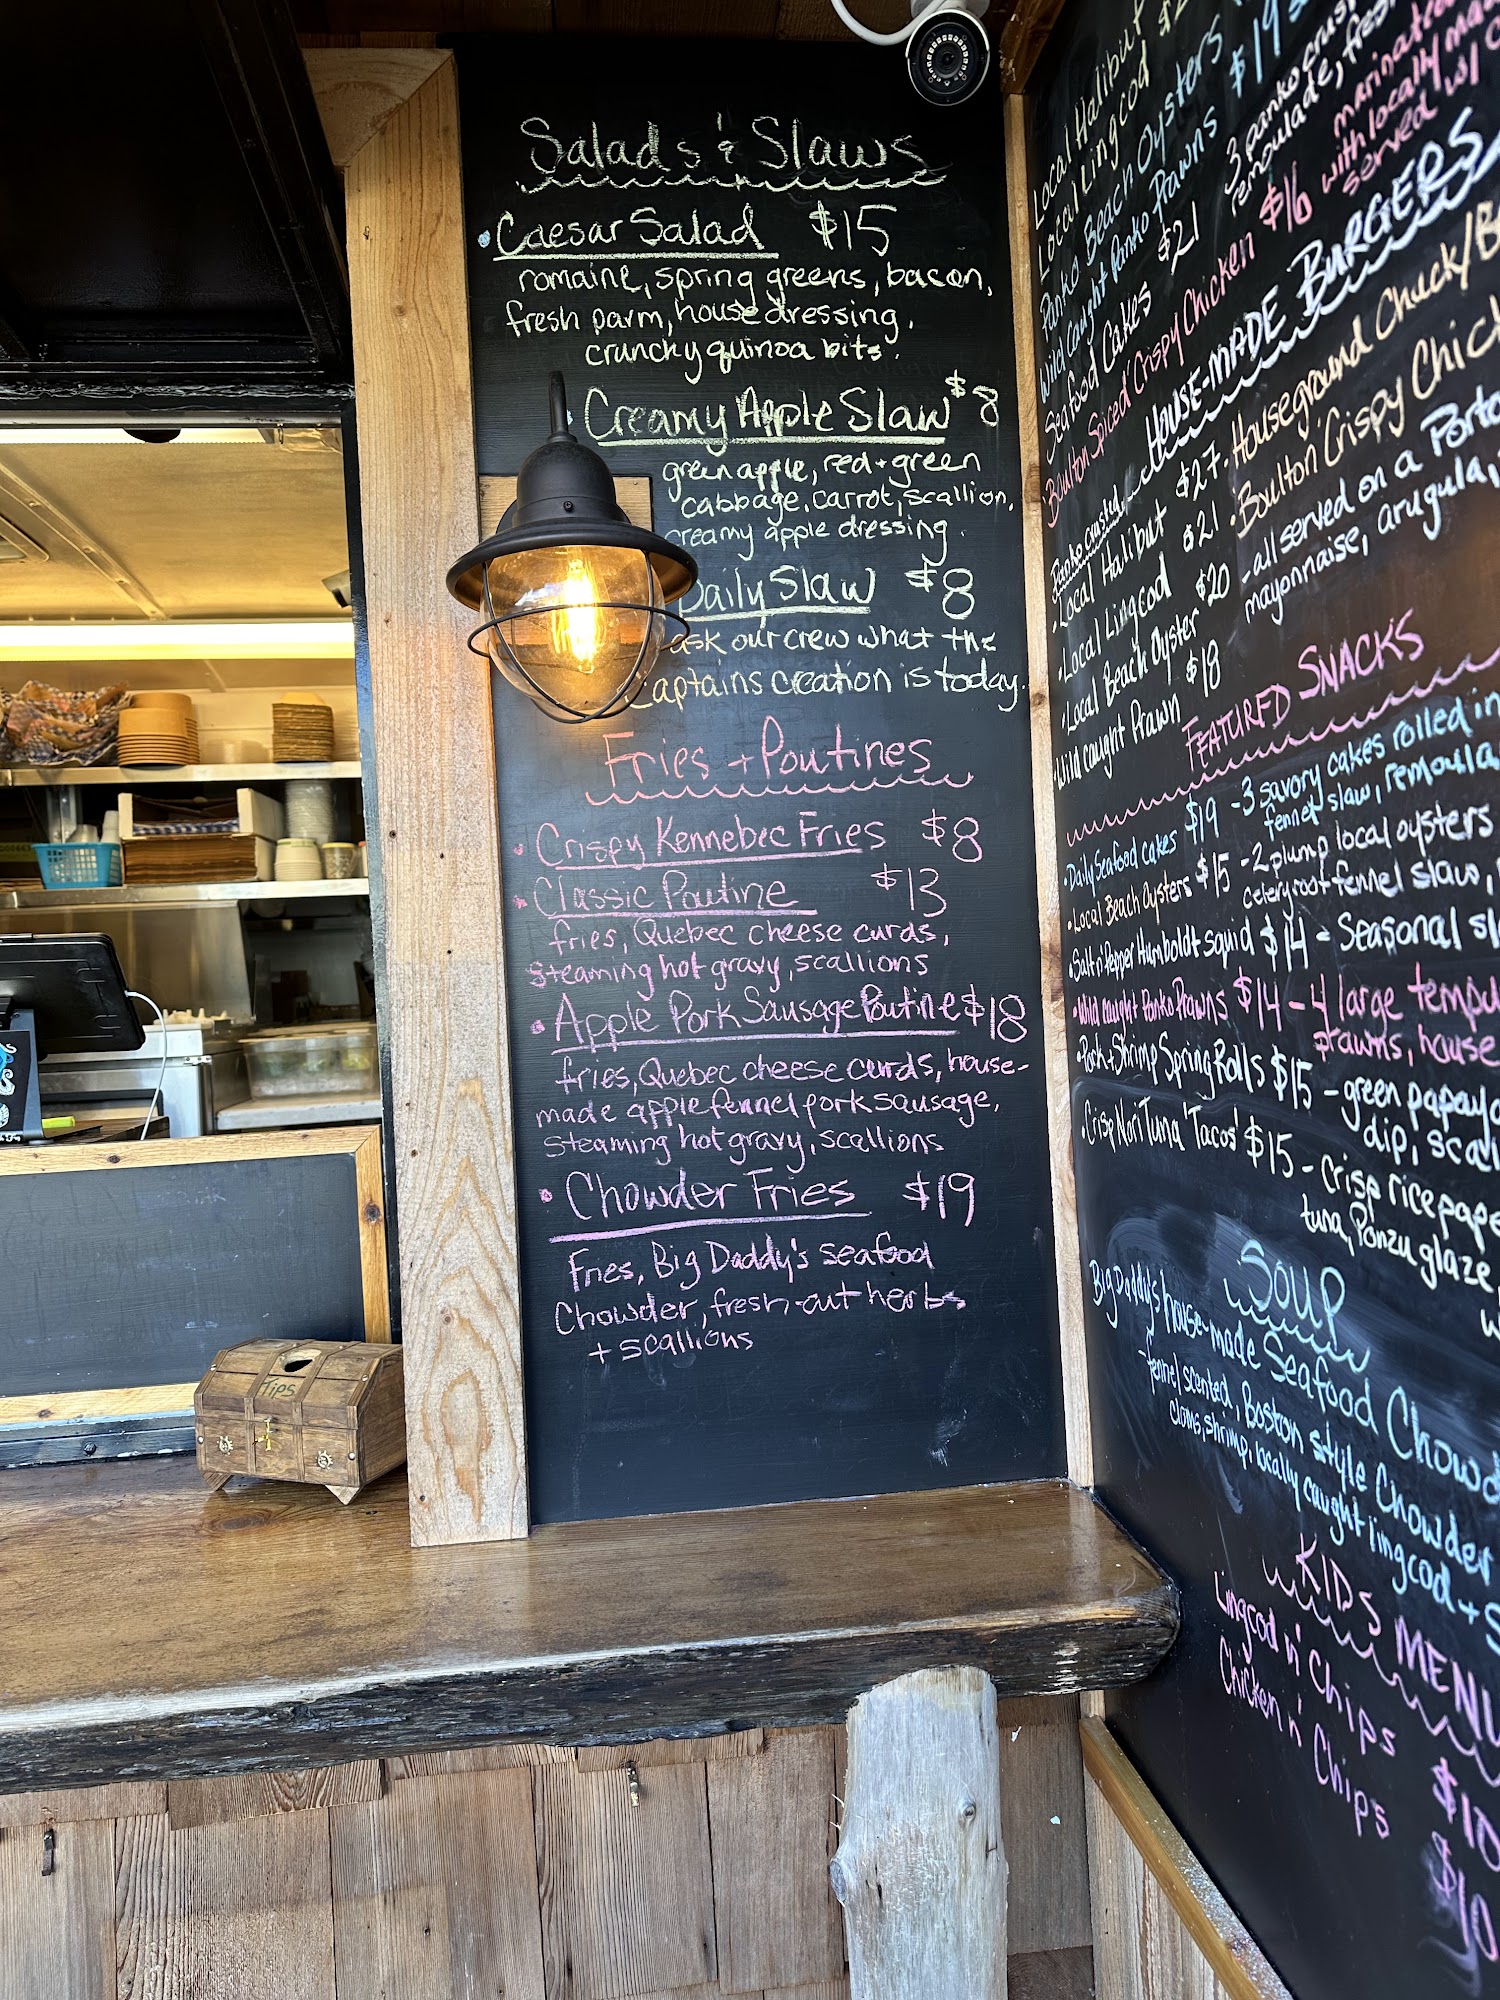 Salads & Slaws
• Caesar Salad $15
romaine, spring greens, bacon,
fresh parm, house dressing,
crunchy quinoa bits.
• Creamy Apple Slaw $8
green apple, red + green
cabbage, carrot, scallion,
creamy apple dressing.
Daily Slaw $8
ask our crew what the
Captains creation is today.
Fries + Poutines
• Crispy Kennebec Fries $8
• Classic Poutine $13
fries, Quebec cheese curds,
steaming hot gravy, scallions
• Apple Pork Sausage Poutine $18
fries, Quebec cheese curds, house-
made apple fennel pork sausage,
steaming hot gravy, scallions
• Chowder Fries $19
Fries, Big Daddy's seafood
Chowder, fresh-cut herbs
+ scallions
Tips
Local Halibut
Local Lingcod
Panko Beach Oysters $19
Wild Caught Panko Prawns
Seafood Cakes $21
3 panko crus
remoulade, fres
Boulton Spiced Crispy Chicken $16
marinated
with locally ma
served w/
HOUSE-MADE BURGERS
Panko crusted
• Local Halibut $27
• Local Lingcod $21
• Local Beach Oyster $20
• Wild caught Prawn $18
• Houseground Chuck/B
• Boulton Crispy Chic
- all served on a Porto
mayonnaise, arugula,
FEATURED SNACKS
• Daily Seafood cakes $19 - 3 savory cakes rolled in
fennel slaw, remoula
• Local Beach Oysters $15 - 2 plump local oysters
celery root fennel slaw,
• Salt n' Pepper Humboldt squid $14 - Seasonal sl
• Wild caught Panko Prawns $14 - 4 large tempu
prawns, house
• Pork + Shrimp Spring Rolls $15 - green papaya
dip, scall
• Crisp Nori Tuna 'Tacos' $15 - crisp rice pape
tuna, Ponzu glaze
w
SOUP
Big Daddy's house-made Seafood Chowd
- fennel scented, Boston style Chowder
clams, shrimp, locally caught lingcod + S
KIDS MENU
Lingcod n' Chips $10
Chicken n' Chips $10